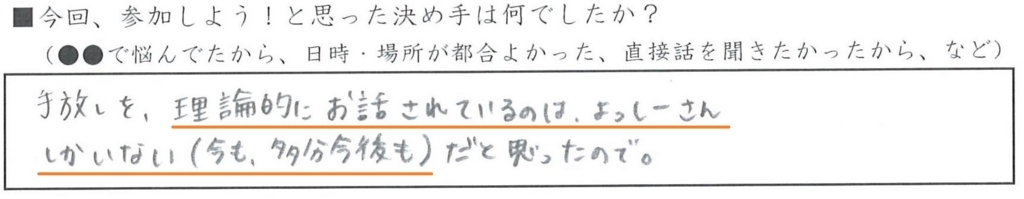 ■今回、参加しよう！と思った決め手は何でしたか？
（●●で悩んでたから、日時・場所が都合よかった、直接話を聞きたかったから、など）
手放しを、理論的にお話されているのは、よっしーさん
しかいない(今も、多分今後も)だと思ったので。